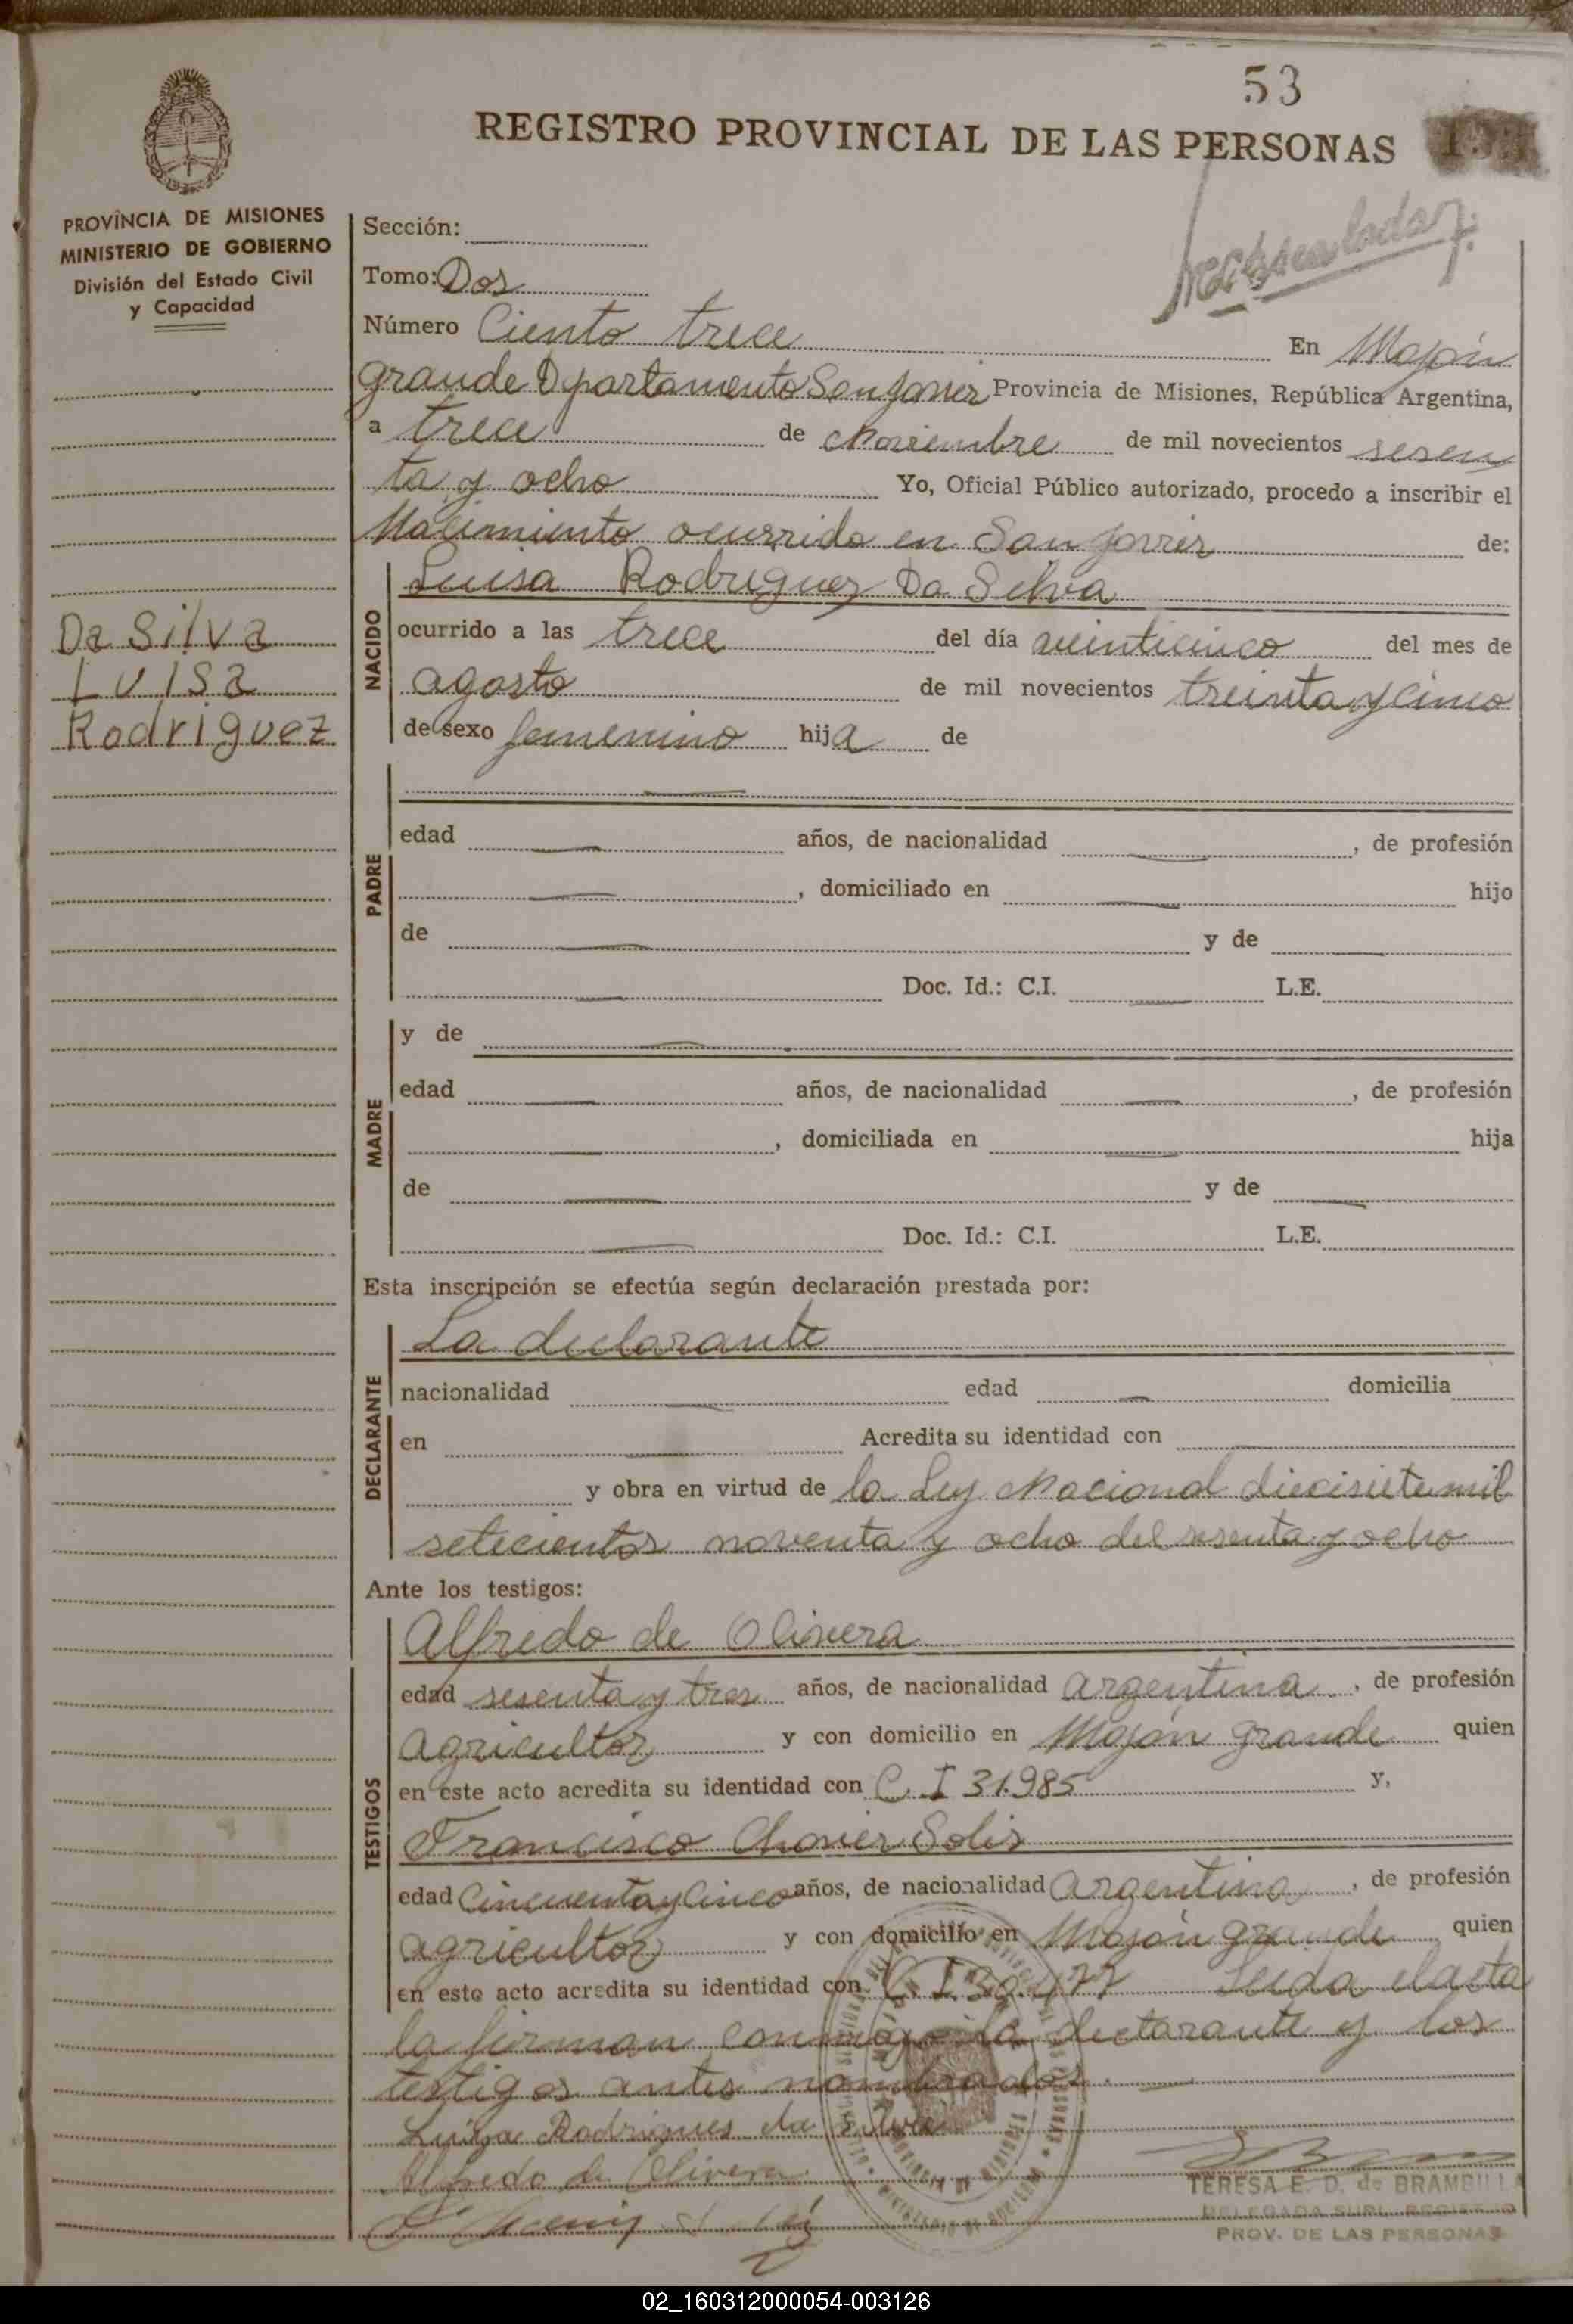 53
REGISTRO PROVINCIAL DE LAS PERSONAS
PROVINCIA DE MISIONES
MINISTERIO DE GOBIERNO
División del Estado Civil
y Capacidad
Sección:
Tomo: Dos
Número Ciento trece En Mojón
grande Dpartamento San Javier Provincia de Misiones, República Argentina,
a trece de Noviembre de mil novecientos sesen
ta y ocho Yo, Oficial Público autorizado, procedo a inscribir el
Nacimiento ocurrido en San Javier de:
Da Silva
Luisa
Rodriguez
NACIDO
Luisa Rodriguez Da Silva
ocurrido a las trece del día veinticinco del mes de
agosto de mil novecientos treinta y cinco
de sexo femenino hija de
PADRE
edad años, de nacionalidad , de profesión
, domiciliado en hijo
de y de
Doc. Id.: C.I. L.E.
MADRE
y de
edad años, de nacionalidad , de profesión
, domiciliada en hija
de y de
Doc. Id.: C.I. L.E.
Esta inscripción se efectúa según declaración prestada por:
DECLARANTE
La declarante
nacionalidad edad domicilia
en Acredita su identidad con
y obra en virtud de la Ley Nacional diecisiete mil
setecientos noventa y ocho del sesenta y ocho
Ante los testigos:
TESTIGOS
Alfredo de Olivera
edad sesenta y tres años, de nacionalidad argentina, de profesión
agricultor y con domicilio en Mojón grande quien
en este acto acredita su identidad con C. I 31.985 y,
Francisco Chavier Solis
edad Cincuenta y Cinco años, de nacionalidad argentina, de profesión
agricultor y con domicilio en Mojón grande quien
en este acto acredita su identidad con C. I. Leida el acta
la firman conmigo la declarante y los
testigos antes nombrados.
Luiza Rodrigues da Silva
Alfredo de Olivera
TERESA E. D. de BRAMBILLA
DELEGADA SUPL. REGISTRO
PROV. DE LAS PERSONAS
02_160312000054-003126